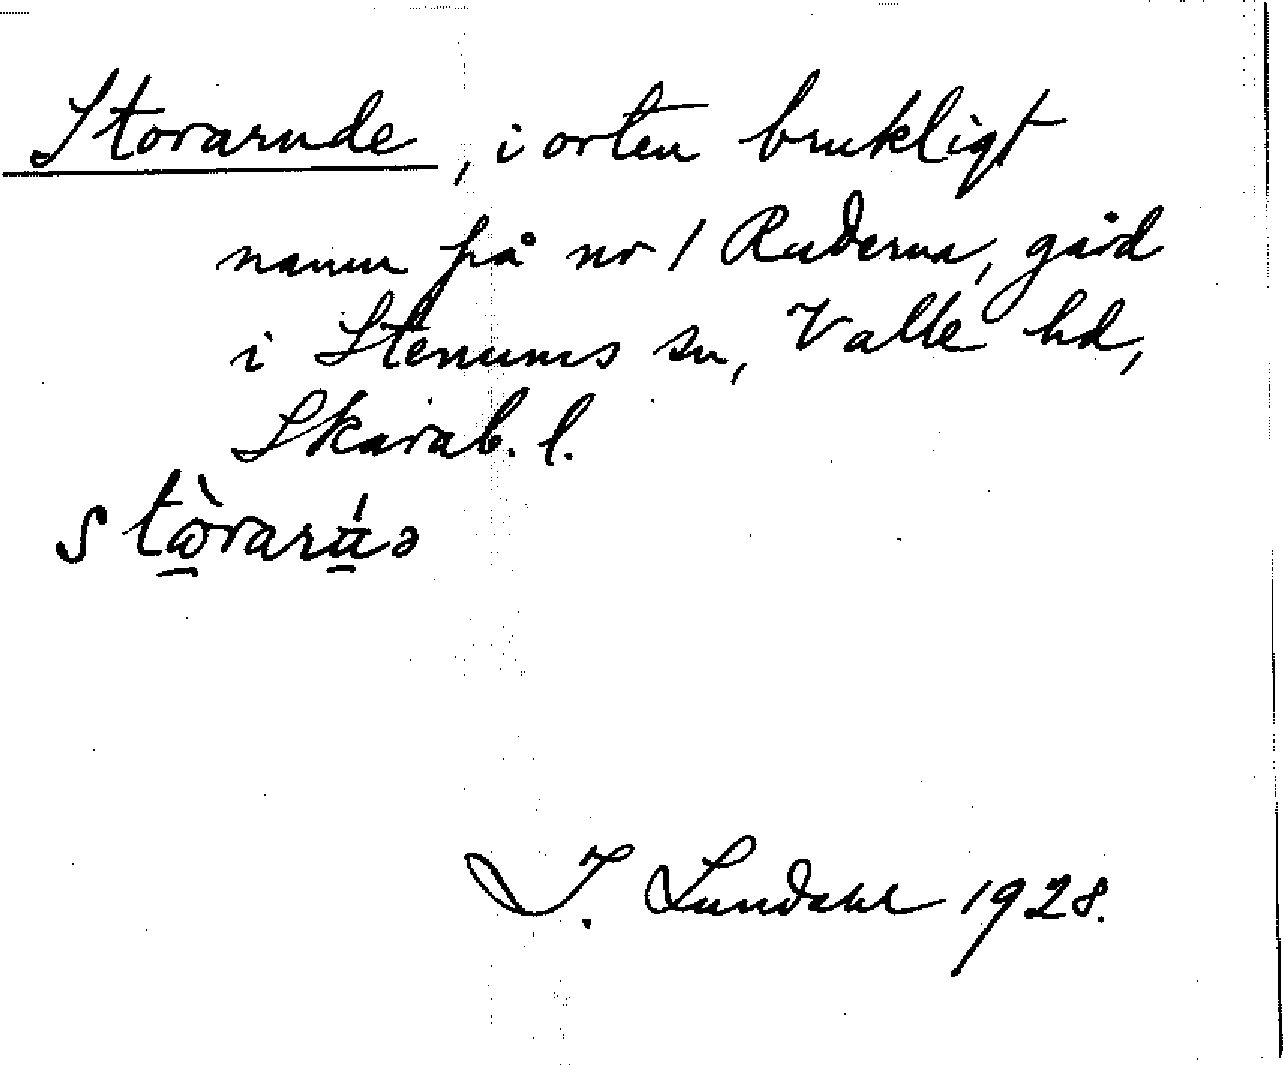 Storarude, i orten brukligt
namn på nr 1 Ruderna, gård
i Stenums sn, Valle hd,
Skarab. l.
stὼ̲rarú̲ə
I. Lundahl 1928.